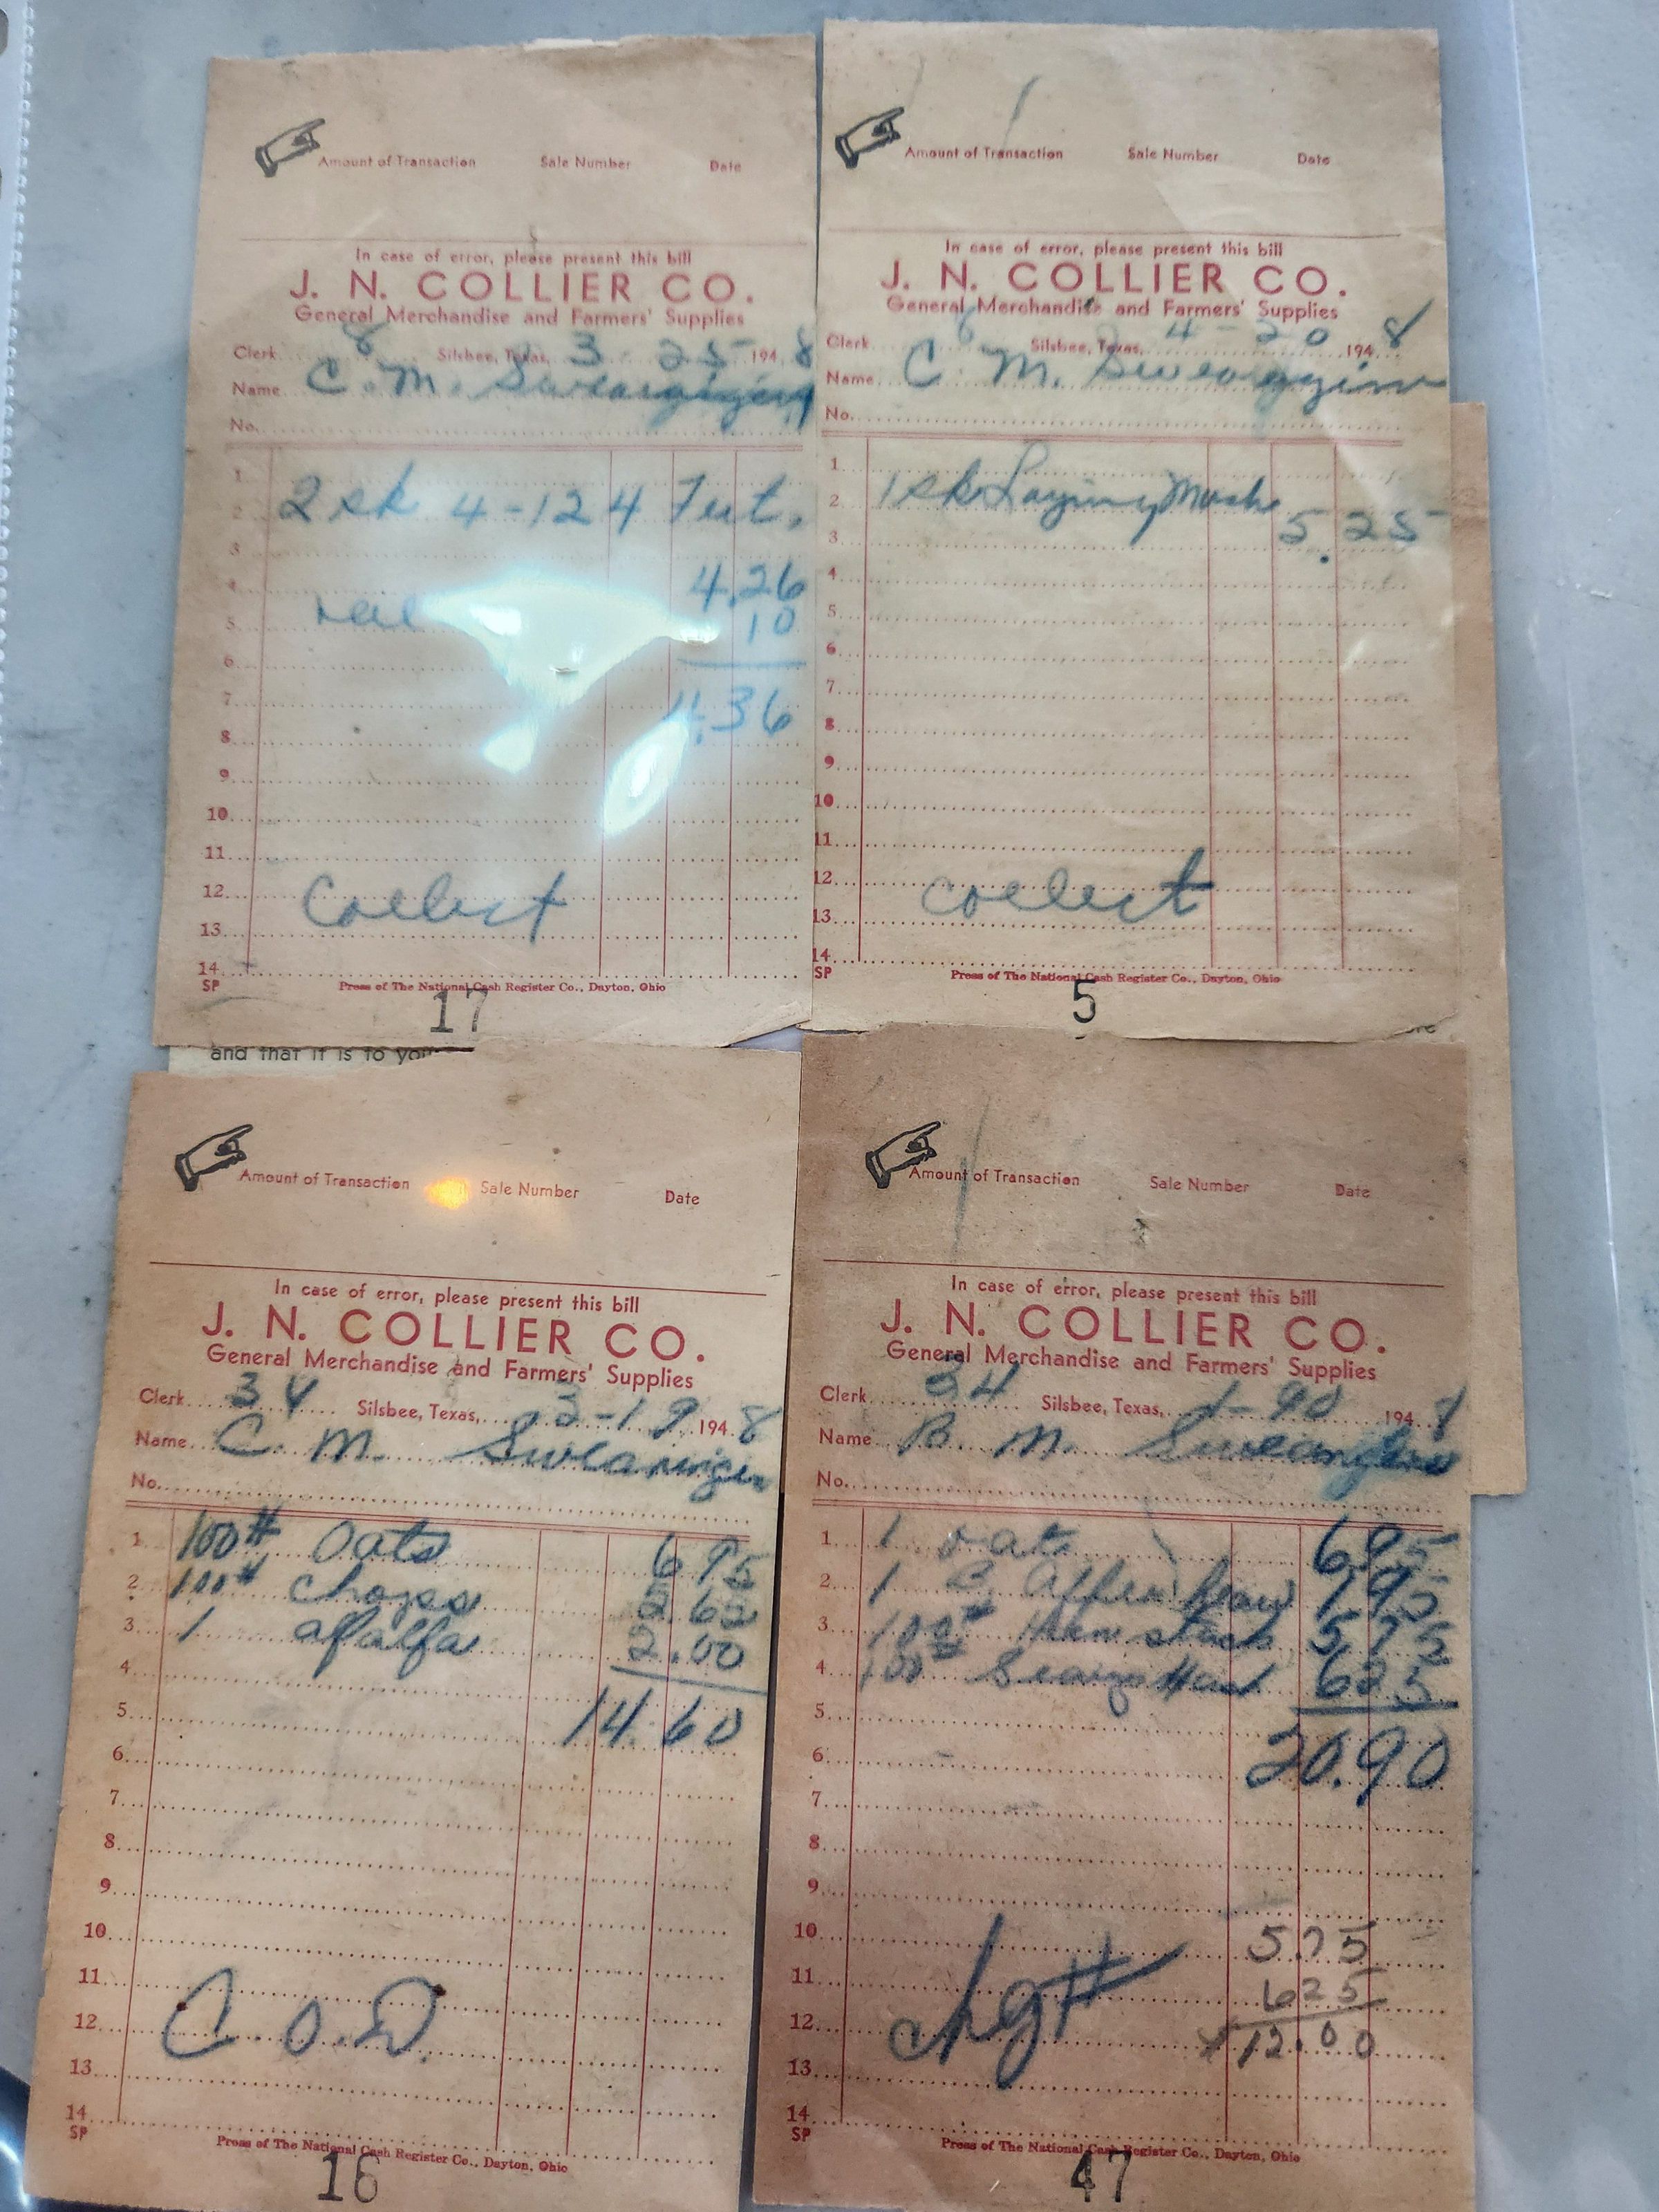 Amount of Transaction Sale Number Date
In case of error, please present this bill
J. N. COLLIER CO.
General Merchandise and Farmers' Supplies
Clerk 8 Silsbee, Texas, 3 25 194 8
Name C. M.
No.
1
2 2 sk 4-12 4
3
4 4.26
5 10
6
7 4.36
8
9
10
11
12 Collect
13
14
SP Press of The National Cash Register Co., Dayton, Ohio
17
Amount of Transaction Sale Number Date
In case of error, please present this bill
J. N. COLLIER CO.
General Merchandise and Farmers' Supplies
Clerk 6 Silsbee, Texas, 4-20 194 8
Name C. M.
No.
1
2 1 sk Laying Mash
3 5.25
4
5
6
7
8
9
10
11
12 Collect
13
14
SP Press of The National Cash Register Co., Dayton, Ohio
5
and that it is to you
Amount of Transaction Sale Number Date
In case of error, please present this bill
J. N. COLLIER CO.
General Merchandise and Farmers' Supplies
Clerk 34 Silsbee, Texas, 3-19 194 8
Name C. M. Swearingen
No.
1 100# Oats 6 95
2 100# Chops
3 1 alfalfa 2.00
4
5 14.60
6
7
8
9
10
11
12 C.O.D.
13
14
SP Press of The National Cash Register Co., Dayton, Ohio
16
Amount of Transaction Sale Number Date
In case of error, please present this bill
J. N. COLLIER CO.
General Merchandise and Farmers' Supplies
Clerk 34 Silsbee, Texas, 194
Name B. M.
No.
1 1 oat 6 95
2 1 1 95
3 100# 5 75
4 100# 6 25
5
6 20.90
7
8
9
10 5.75
11 6 25
12 chg# 12.00
13
14
SP Press of The National Cash Register Co., Dayton, Ohio
47